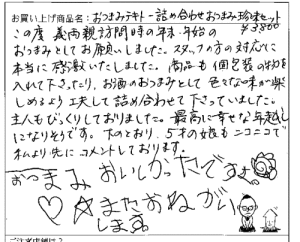 お買い上げ商品名：おつまみテキトー詰め合わせおつまみ珍味セット
¥3,800
この度 義両親訪問時の年末・年始の
おつまみとしてお願いしました。スタッフの方の対応に
本当に感動いたしました。商品も個包装の物を
入れて下さったり、お酒のおつまみとして色々な味が楽
しめるよう工夫して詰め合わせて下さっていました。
主人もびっくりしておりました。最高に幸せな年越し
になりそうです。下のとおり、5才の娘もニコニコで
私より先にコメントしております。
おつまみ おいしかったです
またおねがい
します